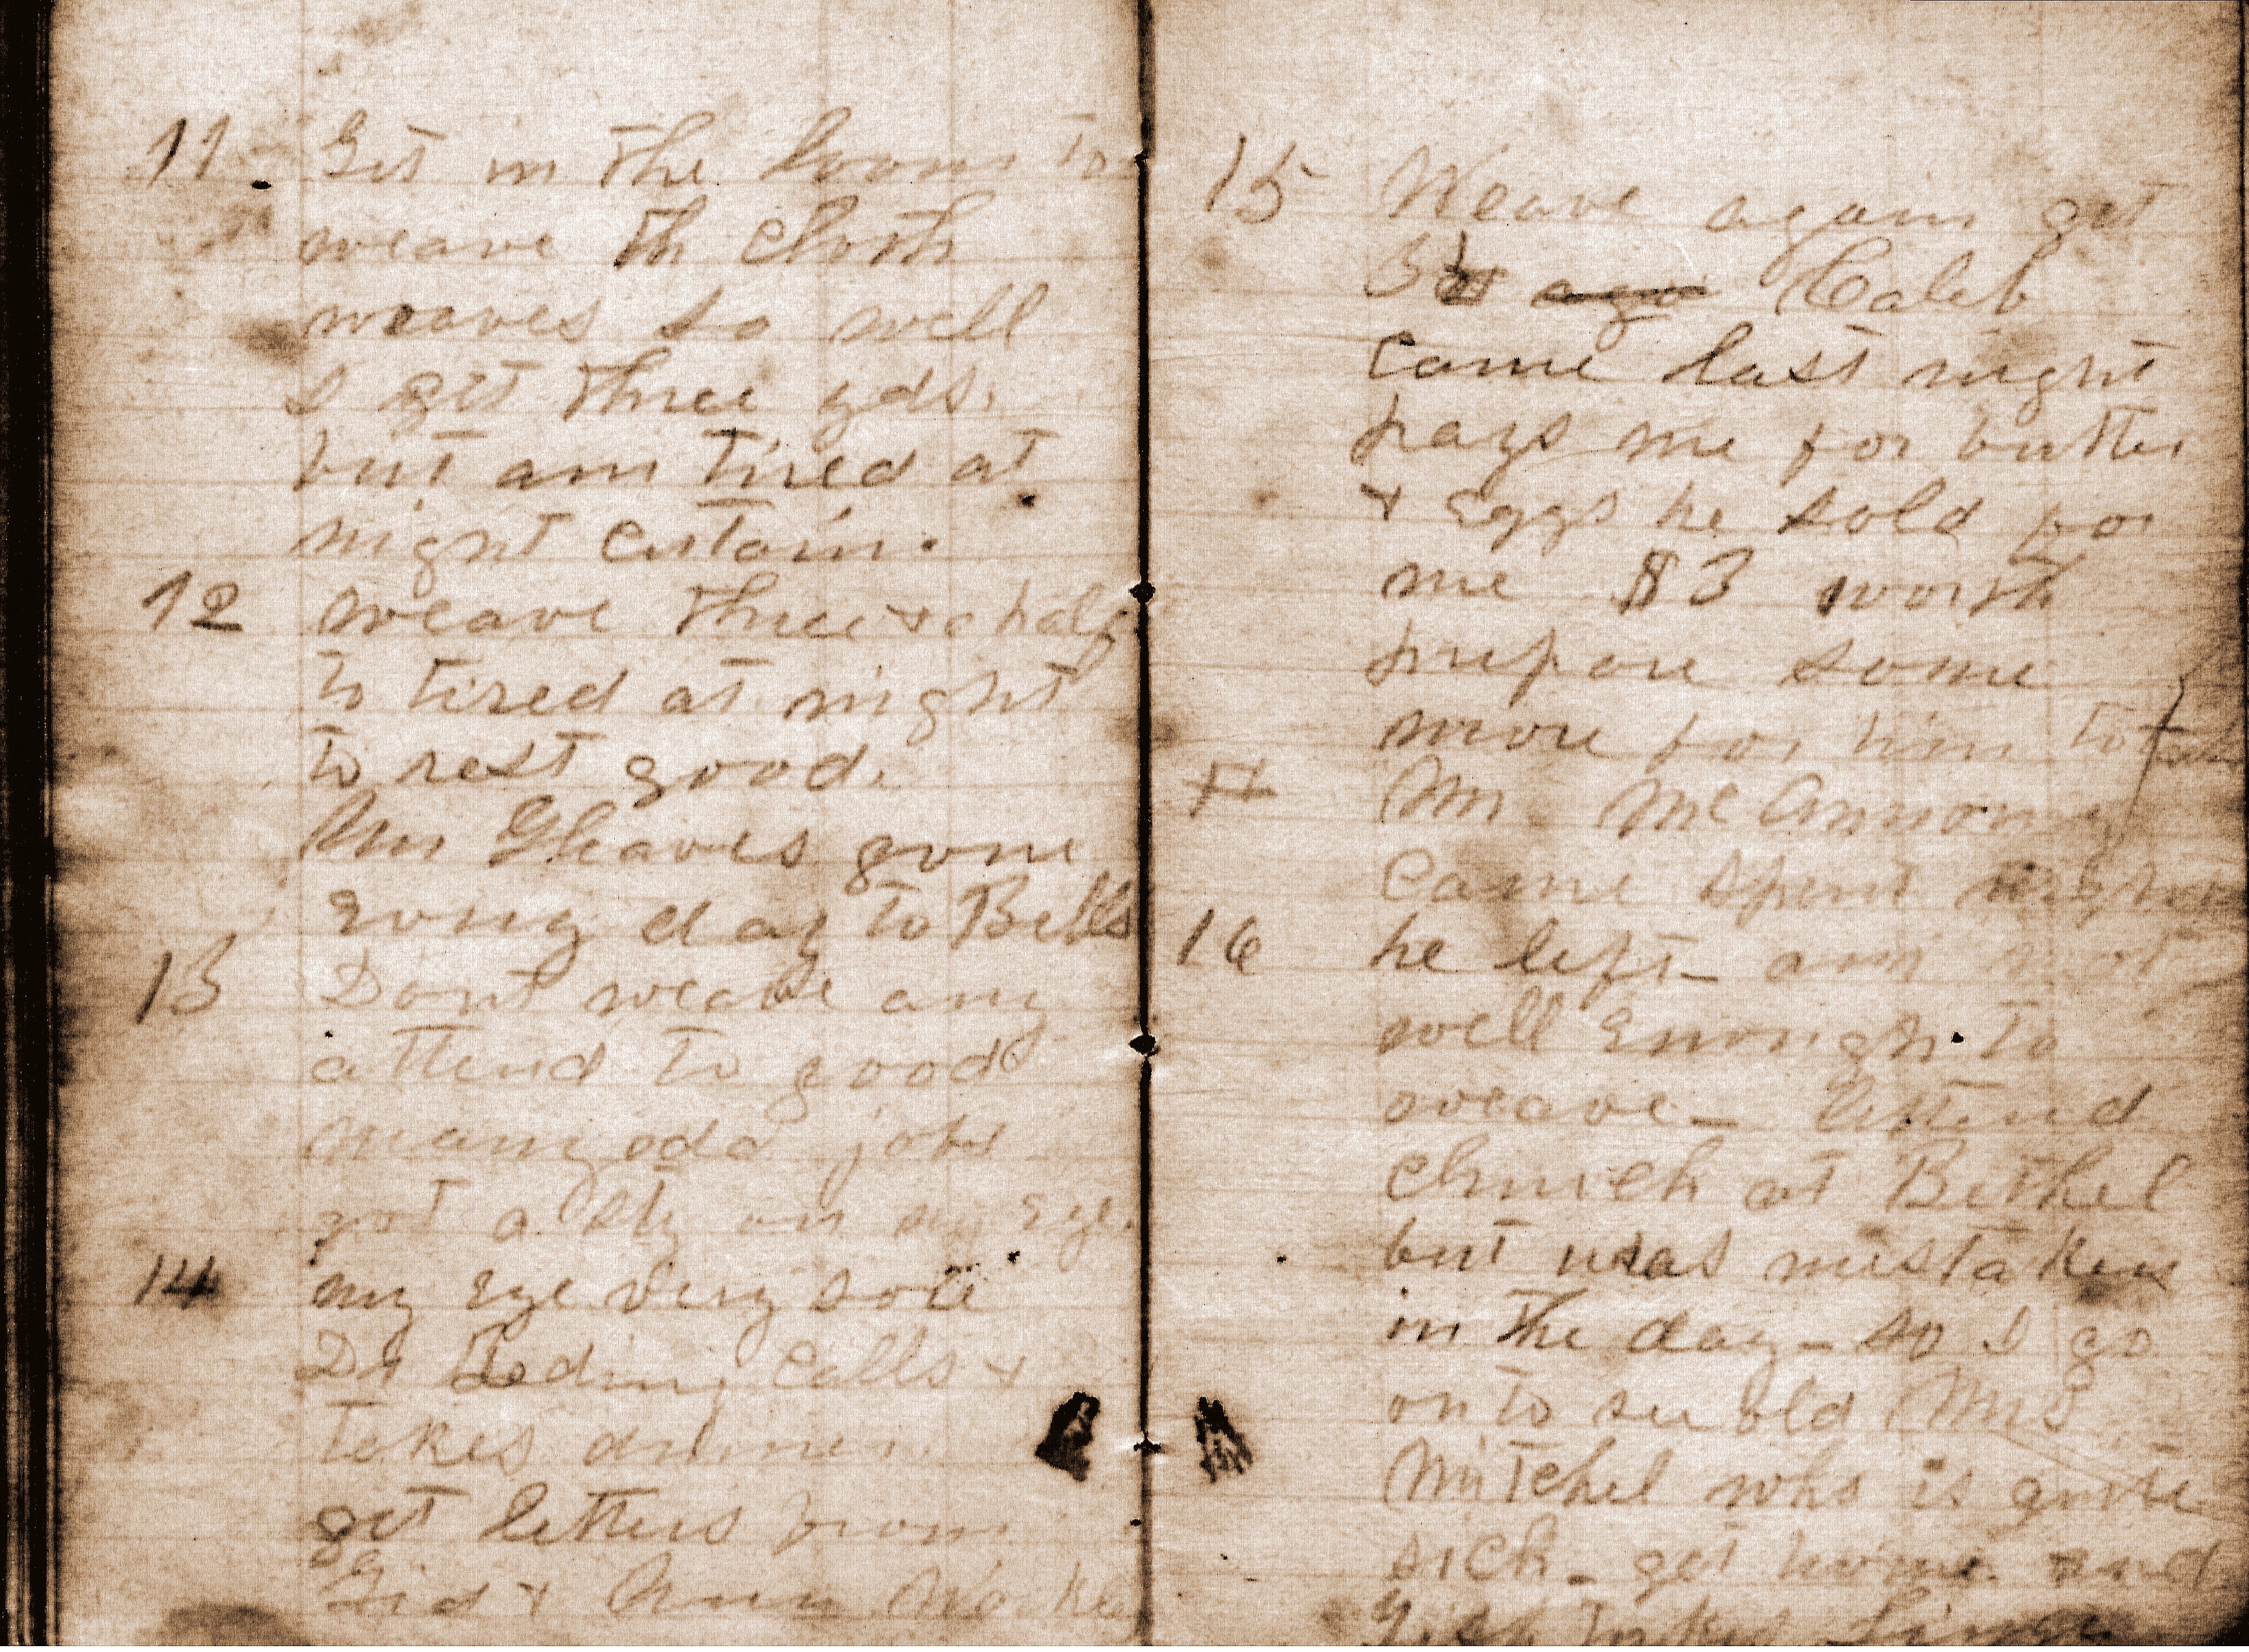 11. Get in the loom to
weave th cloth
weaves so well
I get three yds.
but am tired at
night certain.
12 weave three & a half
to tired at night
to rest good.
Gleaves gone
day to Bells
13 Dont weave any
attend to good
many odd jobs
got a sty on my Eye.
14 my Eye very sore
Dr calls &
takes dinner
get letters from
Gid & Ann
15 Weave again get
Caleb
came last night
pays me for butter
& Eggs he sold for
me $3 worth
prepare some
more for him to
Mr
came spent
16 he left - am not
well Enough to
weave - Attend
church at Bethel
but was mistaken
in the day - so I go
on to see old Mrs
Mitchel who is quite
sick - get home and